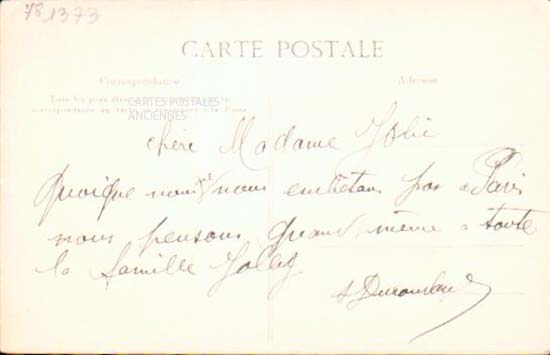 78 1373
CARTE POSTALE
Correspondance
Adresse
Tous les pays
correspondance au à la Poste
CARTES POSTALES
ANCIENNES
chère Madame Jolie
Quoique nous nous embêtons pas a Paris
nous pensons quand même a toute
la famille